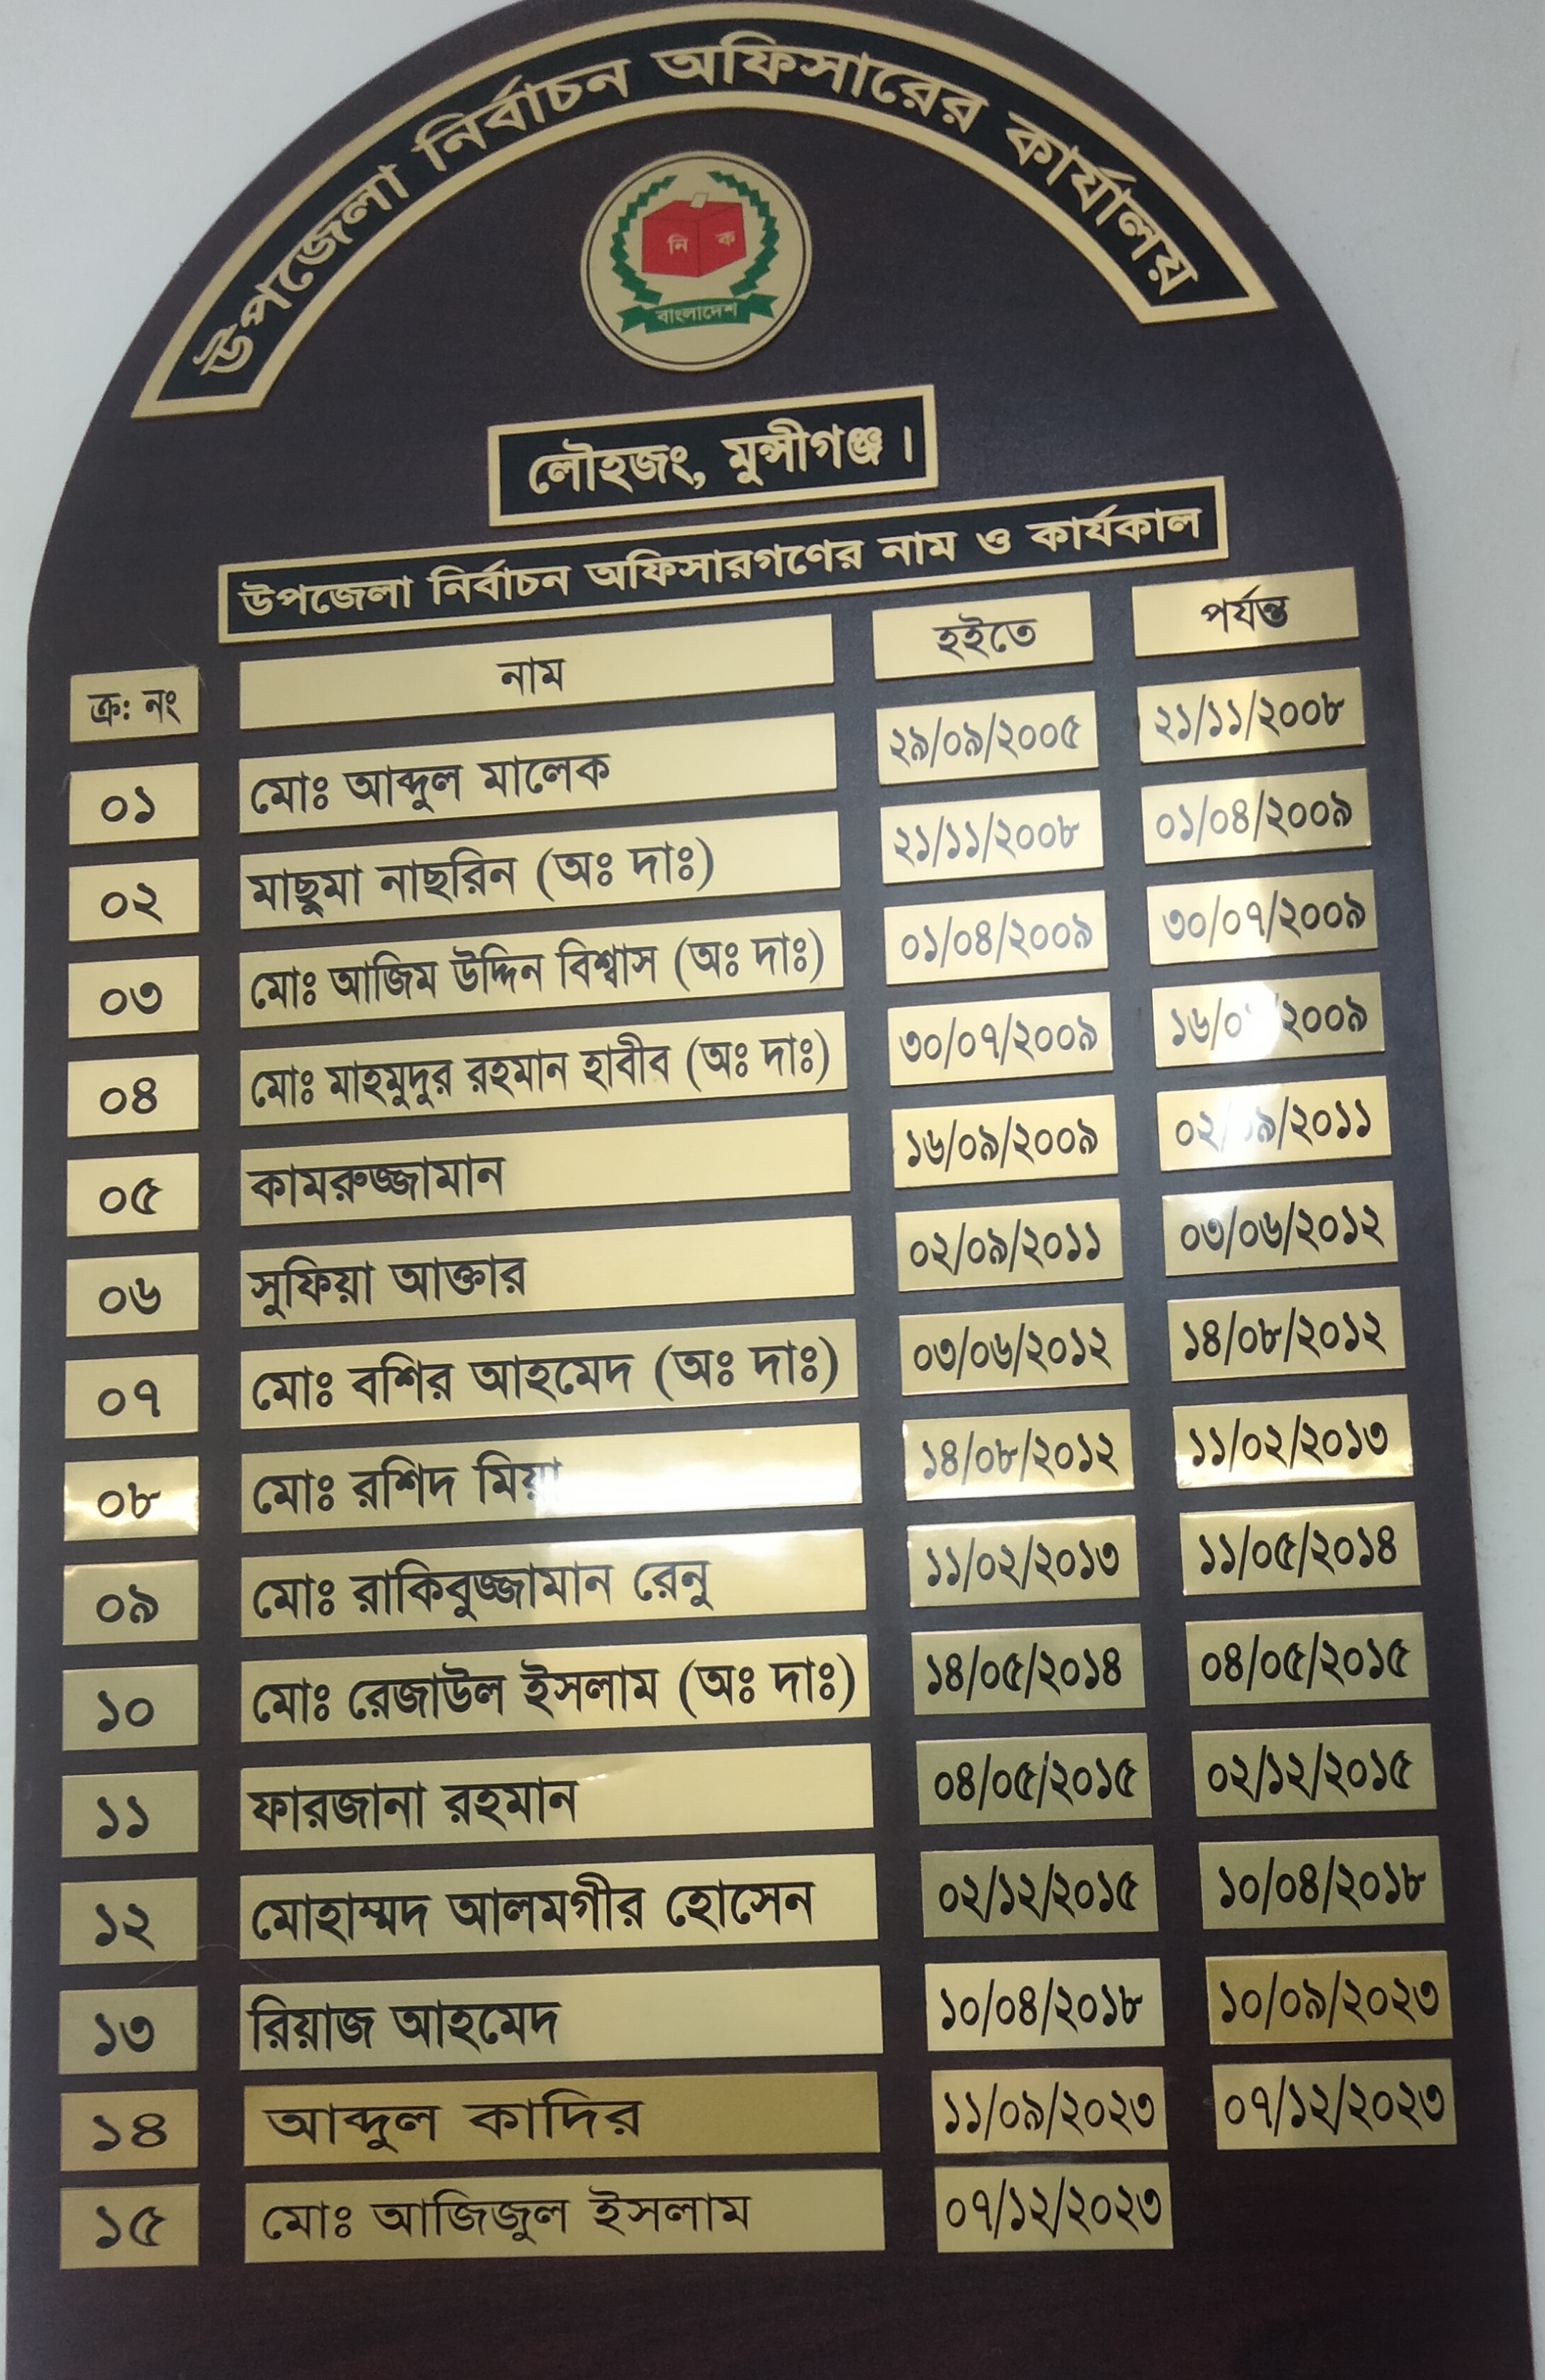 উপজেলা নির্বাচন অফিসারের কার্যালয়
নি ক
বাংলাদেশ
লৌহজং, মুন্সীগঞ্জ।
উপজেলা নির্বাচন অফিসারগণের নাম ও কার্যকাল
ক্র: নং নাম হইতে পর্যন্ত
০১ মোঃ আব্দুল মালেক ২৯/০৯/২০০৫ ২১/১১/২০০৮
০২ মাছুমা নাছরিন (অঃ দাঃ) ২১/১১/২০০৮ ০১/০৪/২০০৯
০৩ মোঃ আজিম উদ্দিন বিশ্বাস (অঃ দাঃ) ০১/০৪/২০০৯ ৩০/০৭/২০০৯
০৪ মোঃ মাহমুদুর রহমান হাবীব (অঃ দাঃ) ৩০/০৭/২০০৯
০৫ কামরুজ্জামান ১৬/০৯/২০০৯ ০২/০৯/২০১১
০৬ সুফিয়া আক্তার ০২/০৯/২০১১ ০৩/০৬/২০১২
০৭ মোঃ বশির আহমেদ (অঃ দাঃ) ০৩/০৬/২০১২ ১৪/০৮/২০১২
০৮ মোঃ রশিদ মিয়া ১৪/০৮/২০১২ ১১/০২/২০১৩
০৯ মোঃ রাকিবুজ্জামান রেনু ১১/০২/২০১৩ ১১/০৫/২০১৪
১০ মোঃ রেজাউল ইসলাম (অঃ দাঃ) ১৪/০৫/২০১৪ ০৪/০৫/২০১৫
১১ ফারজানা রহমান ০৪/০৫/২০১৫ ০২/১২/২০১৫
১২ মোহাম্মদ আলমগীর হোসেন ০২/১২/২০১৫ ১০/০৪/২০১৮
১৩ রিয়াজ আহমেদ ১০/০৪/২০১৮ ১০/০৯/২০২৩
১৪ আব্দুল কাদির ১১/০৯/২০২৩ ০৭/১২/২০২৩
১৫ মোঃ আজিজুল ইসলাম ০৭/১২/২০২৩